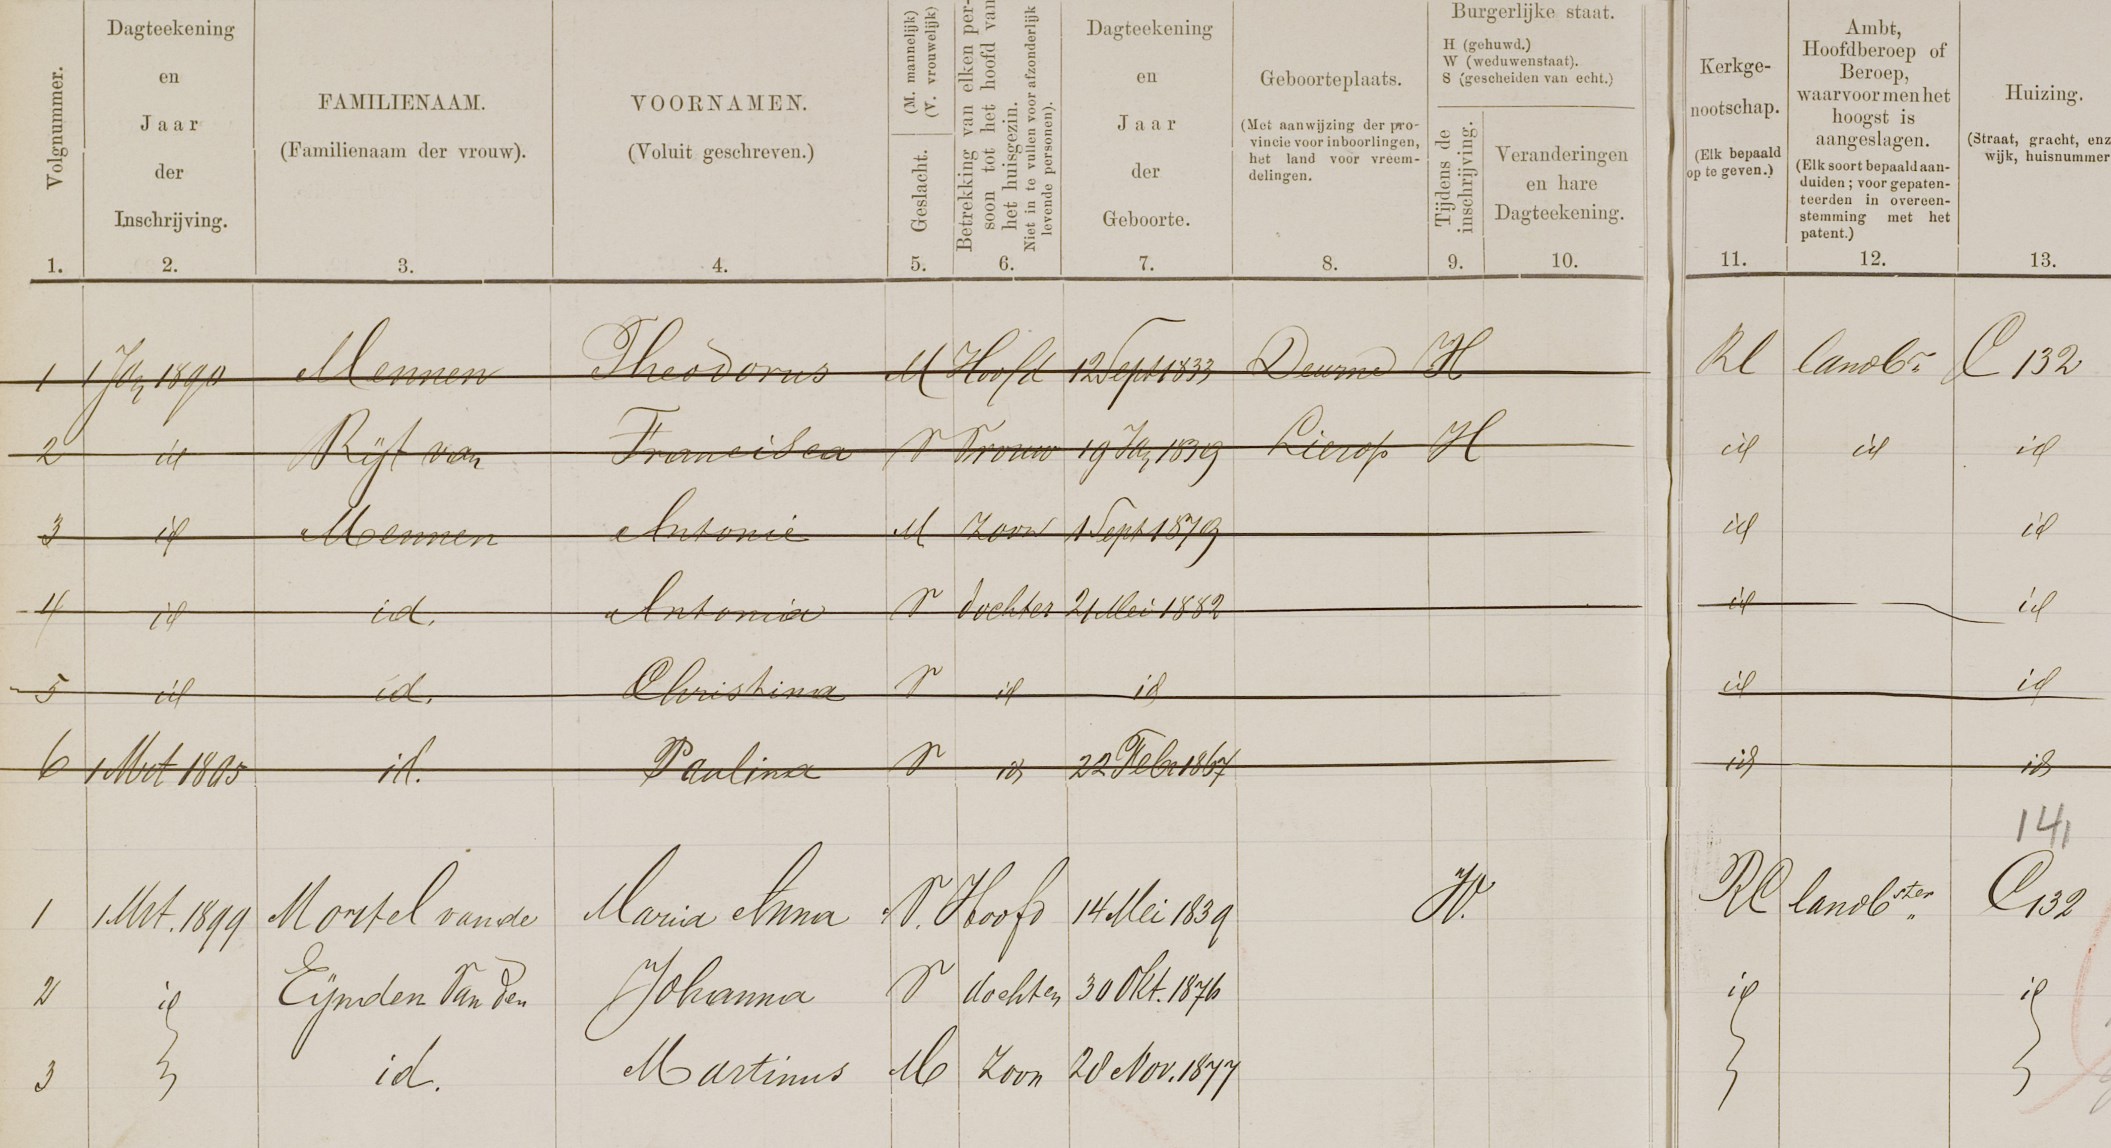 Volgnummer.
1.
Dagteekening
en
Jaar
der
Inschrijving.
2.
FAMILIENAAM.
(Familienaam der vrouw).
3.
VOORNAMEN.
(Voluit geschreven.)
4.
(M. mannelijk)
(V. vrouwelijk)
Geslacht.
5.
Betrekking van elken per-
soon tot het hoofd van
het huisgezin.
Niet in te vullen voor afzonderlijk
levende personen).
6.
Dagteekening
en
Jaar
der
Geboorte.
7.
Geboorteplaats.
(Met aanwijzing der pro-
vincie voor inboorlingen,
het land voor vreem-
delingen.
8.
Burgerlijke staat.
H (gehuwd.)
W (weduwenstaat).
S (gescheiden van echt.)
Tijdens de
inschrijving.
9.
Veranderingen
en hare
Dagteekening.
10.
Kerkge-
nootschap.
(Elk bepaald
op te geven.)
11.
Ambt,
Hoofdberoep of
Beroep,
waarvoor men het
hoogst is
aangeslagen.
(Elk soort bepaald aan-
duiden; voor gepaten-
teerden in overeen-
stemming met het
patent.)
12.
Huizing.
(Straat, gracht, enz
wijk, huisnummer
13.
1 1 Jan 1890 Mennen Theodorus M Hoofd 12 Sept 1833 Deurne H RC landbr C 132
2 id Rijt van Francisca V Vrouw 19 Jan 1839 Lierop H id id id
3 id Mennen Antonie M Zoon 1 Sept 1879 id id
4 id id. Antonia V dochter 21 Mei 1882 id id
5 id id. Christina V id id id id
6 1 Mrt 1895 id. Paulina V id 22 Febr 1867 id id
141
1 1 Mrt. 1899 Mortel van de Maria Anna V. Hoofd 14 Mei 1839 W. RC landbster C 132
2 id Eijnden Van den Johanna V dochter 30 Okt. 1876 id id
3 id. Martinus M Zoon 28 Nov. 1877